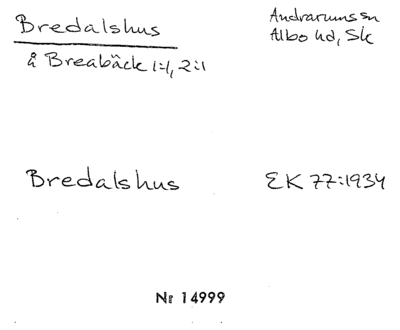 Bredalshus
Andrarums sn
Albo hd, Sk
å Breabäck 1:1, 2:1
Bredalshus EK 77:1934
Nr 14999